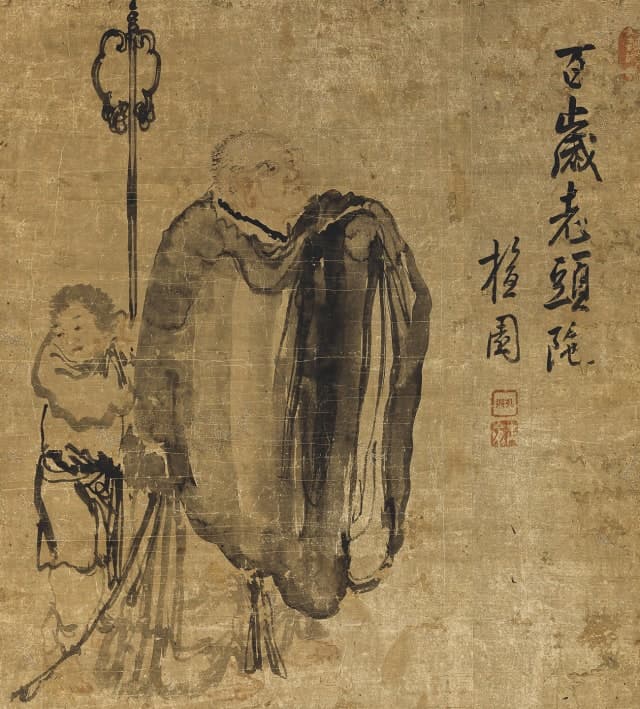 百歲老頭陀
檀園